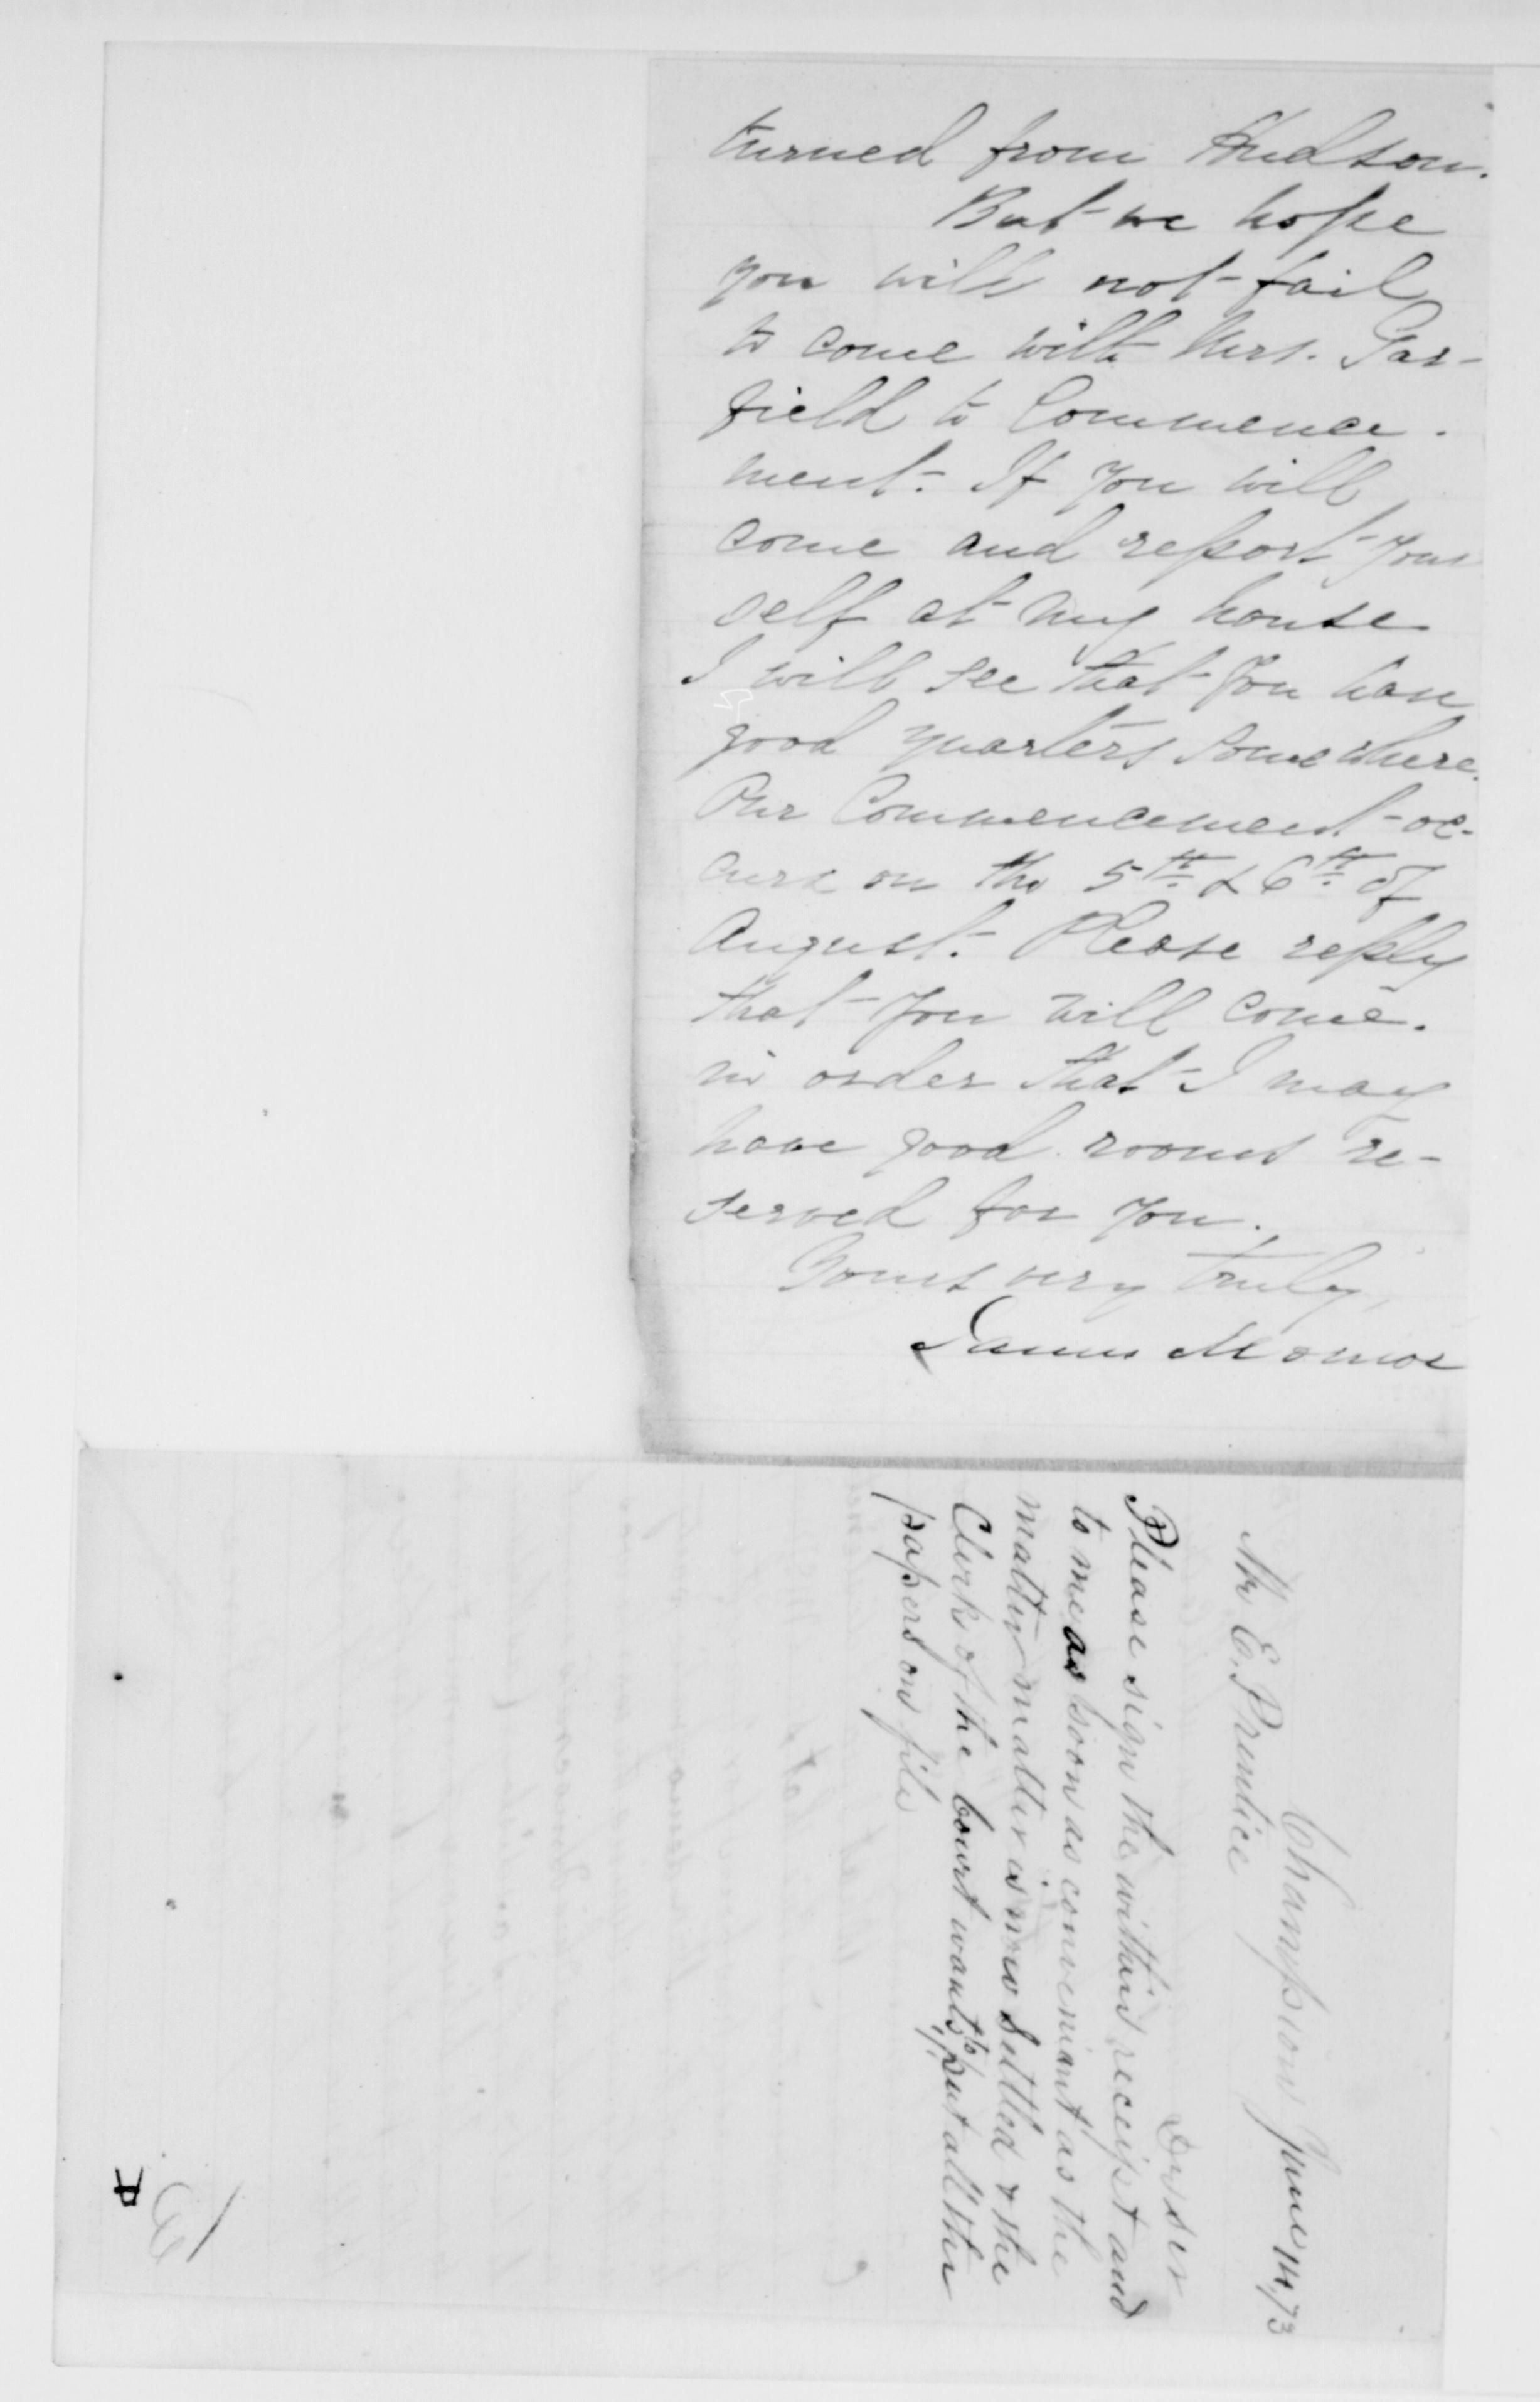 turned from Hudson.
But we hope
you will not fail
to come with Mrs. Gar-
field to Commence-
ment. If you will
come and report your
self at my house
I will see that you have
good quarters somewhere.
Our Commencement oc-
curs on the 5th. & 6th. of
August. Please reply
that you will come.
in order that I may
have good rooms re-
served for you.
Yours very truly,
James Monroe
Champion June 14, 73
Mr E. Prentice
Dr Sir
Please sign the within receipt and
to me as soon as conveniant as the
matter matter is now Settled & the
Clerk of the Court wants to put all the
papers on file